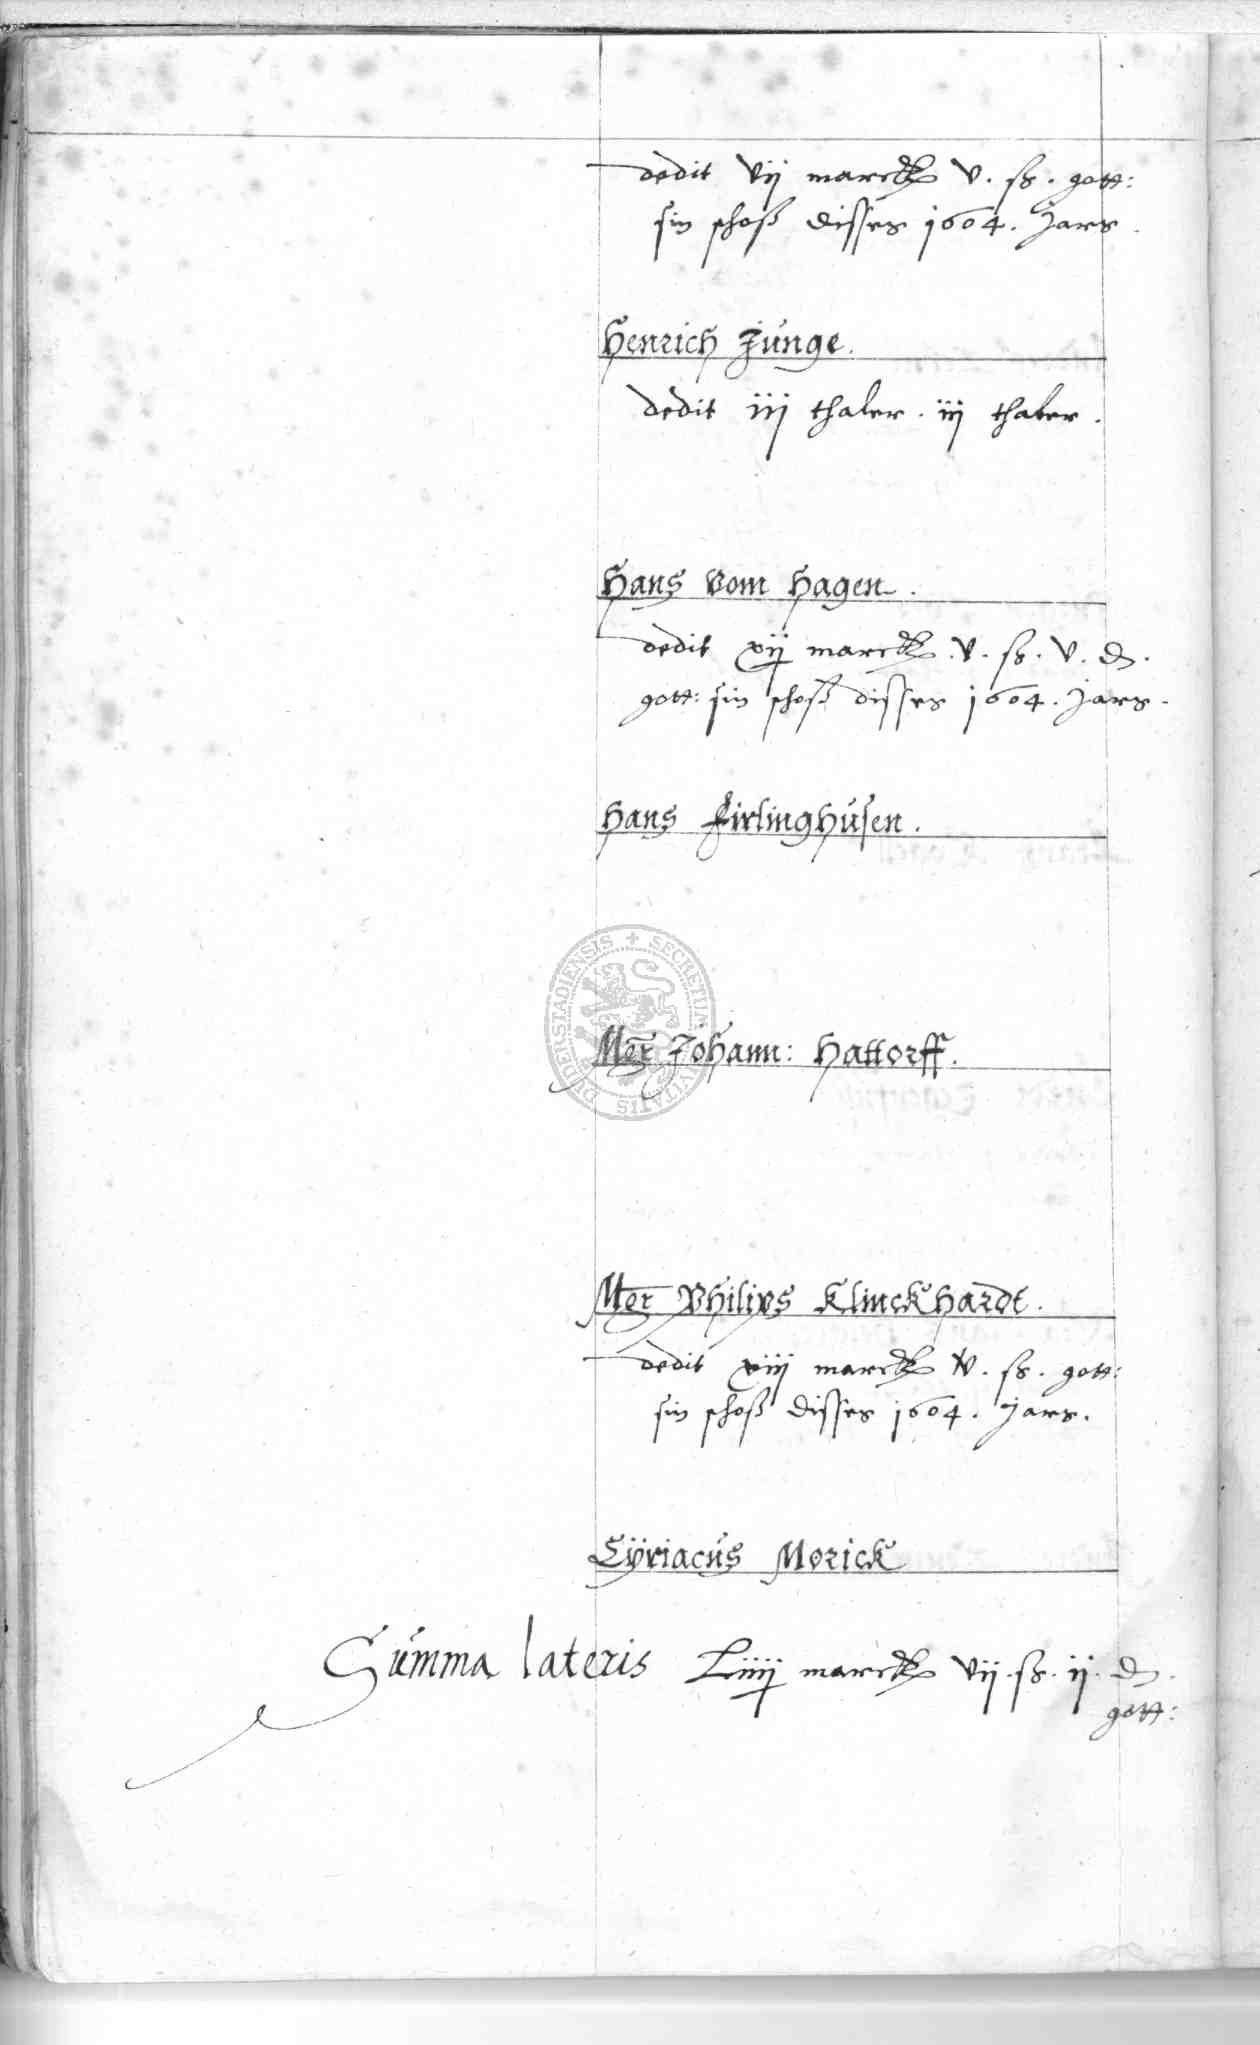 dedit vij marck v. ß. gott:
sin schoß disses 1604. Jars.
Henrich Junge.
dedit iij thaler. iij thaler.
Hans vom Hagen.
dedit xij marck. v. ß. v. d.
gott: sin schoß disses 1604. Jars.
Hans Firlinghusen.
Mer Johann: Hattorff.
Mer Philips Klinckhardt.
dedit xiij marck v. ß. gott:
sin schoß disses 1604. Jars.
Cÿriacus Morick
Summa lateris Liiij marck vij. ß. ij. d.
gott:
SECRETUM CIVITATIS DUDERSTADIENSIS